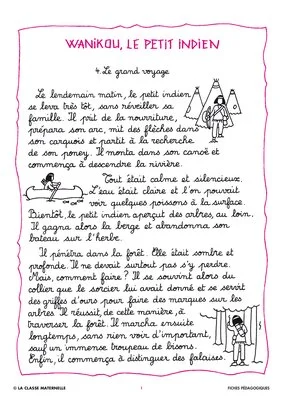 WANIKOU, LE PETIT INDIEN
4. Le grand voyage
Le lendemain matin, le petit indien
se leva très tôt, sans réveiller sa
famille. Il prit de la nourriture,
prépara son arc, mit des flèches dans
son carquois et partit à la recherche
de son poney. Il monta dans son canoë et
commença à descendre la rivière.
Tout était calme et silencieux.
L'eau était claire et l'on pouvait
voir quelques poissons à la surface.
Bientôt, le petit indien aperçut des arbres, au loin.
Il gagna alors la berge et abandonna son
bateau sur l'herbe.
Il pénétra dans la forêt. Elle était sombre et
profonde. Il ne devait surtout pas s'y perdre.
Mais, comment faire ? Il se souvint alors du
collier que le sorcier lui avait donné et se servit
des griffes d'ours pour faire des marques sur les
arbres. Il réussit, de cette manière, à
traverser la forêt. Il marcha ensuite
longtemps, sans rien voir d'important,
sauf un immense troupeau de bisons.
Enfin, il commença à distinguer des falaises.
© LA CLASSE MATERNELLE
1
FICHES PÉDAGOGIQUES